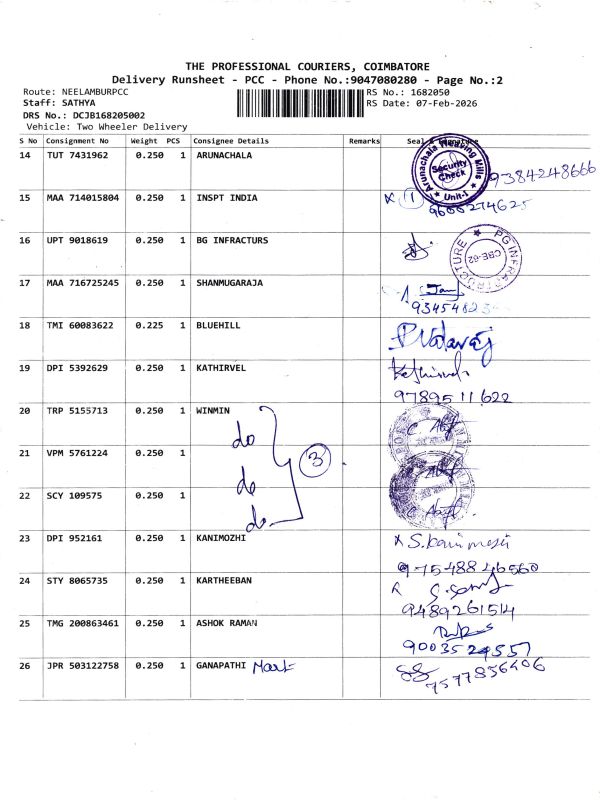 THE PROFESSIONAL COURIERS, COIMBATORE
Delivery Runsheet - PCC - Phone No.:9047080280 - Page No.:2
Route: NEELAMBURPCC
RS No.: 1682050
Staff: SATHYA
RS Date: 07-Feb-2026
DRS No.: DCJB168205002
Vehicle: Two Wheeler Delivery
S No Consignment No Weight PCS Consignee Details Remarks Seal & Signature
14 TUT 7431962 0.250 1 ARUNACHALA
Arunachala Weaving Mills
Security Check
Unit-I
9384248666
15 MAA 714015804 0.250 1 INSPT INDIA
1
9600274625
16 UPT 9018619 0.250 1 BG INFRACTURS
PG INFRASTRUCTURE
CBE-62
17 MAA 716725245 0.250 1 SHANMUGARAJA
18 TMI 60083622 0.225 1 BLUEHILL
19 DPI 5392629 0.250 1 KATHIRVEL
9789511622
20 TRP 5155713 0.250 1 WINMIN
do
21 VPM 5761224 0.250 1
3
do
22 SCY 109575 0.250 1
do
23 DPI 952161 0.250 1 KANIMOZHI
9754884656​0
24 STY 8065735 0.250 1 KARTHEEBAN
9489261514
25 TMG 200863461 0.250 1 ASHOK RAMAN
9003524557
26 JPR 503122758 0.250 1 GANAPATHI Mart
7577856406